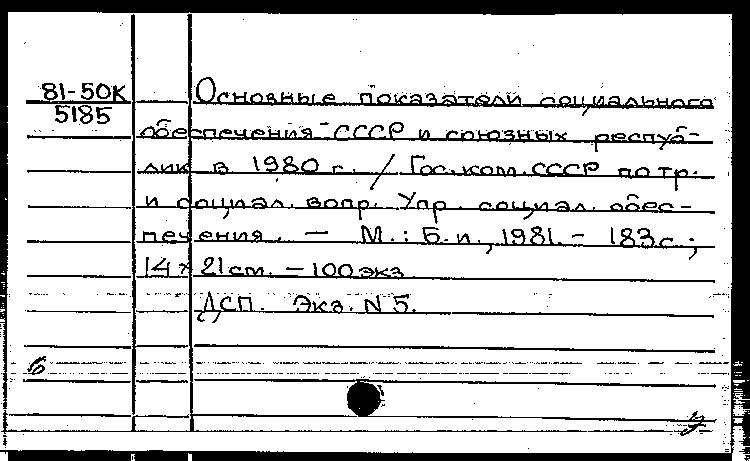 81-50К
5185
Основные показатели социального
обеспечения СССР и союзных респуб-
лик в 1980 г. / Гос. ком. СССР по тр.
и социал. вопр. Упр. социал. обес-
печения. — М.: Б.и., 1981. — 183 с.;
14 х 21 см. — 100 экз.
ДСП. Экз. N 5.
6